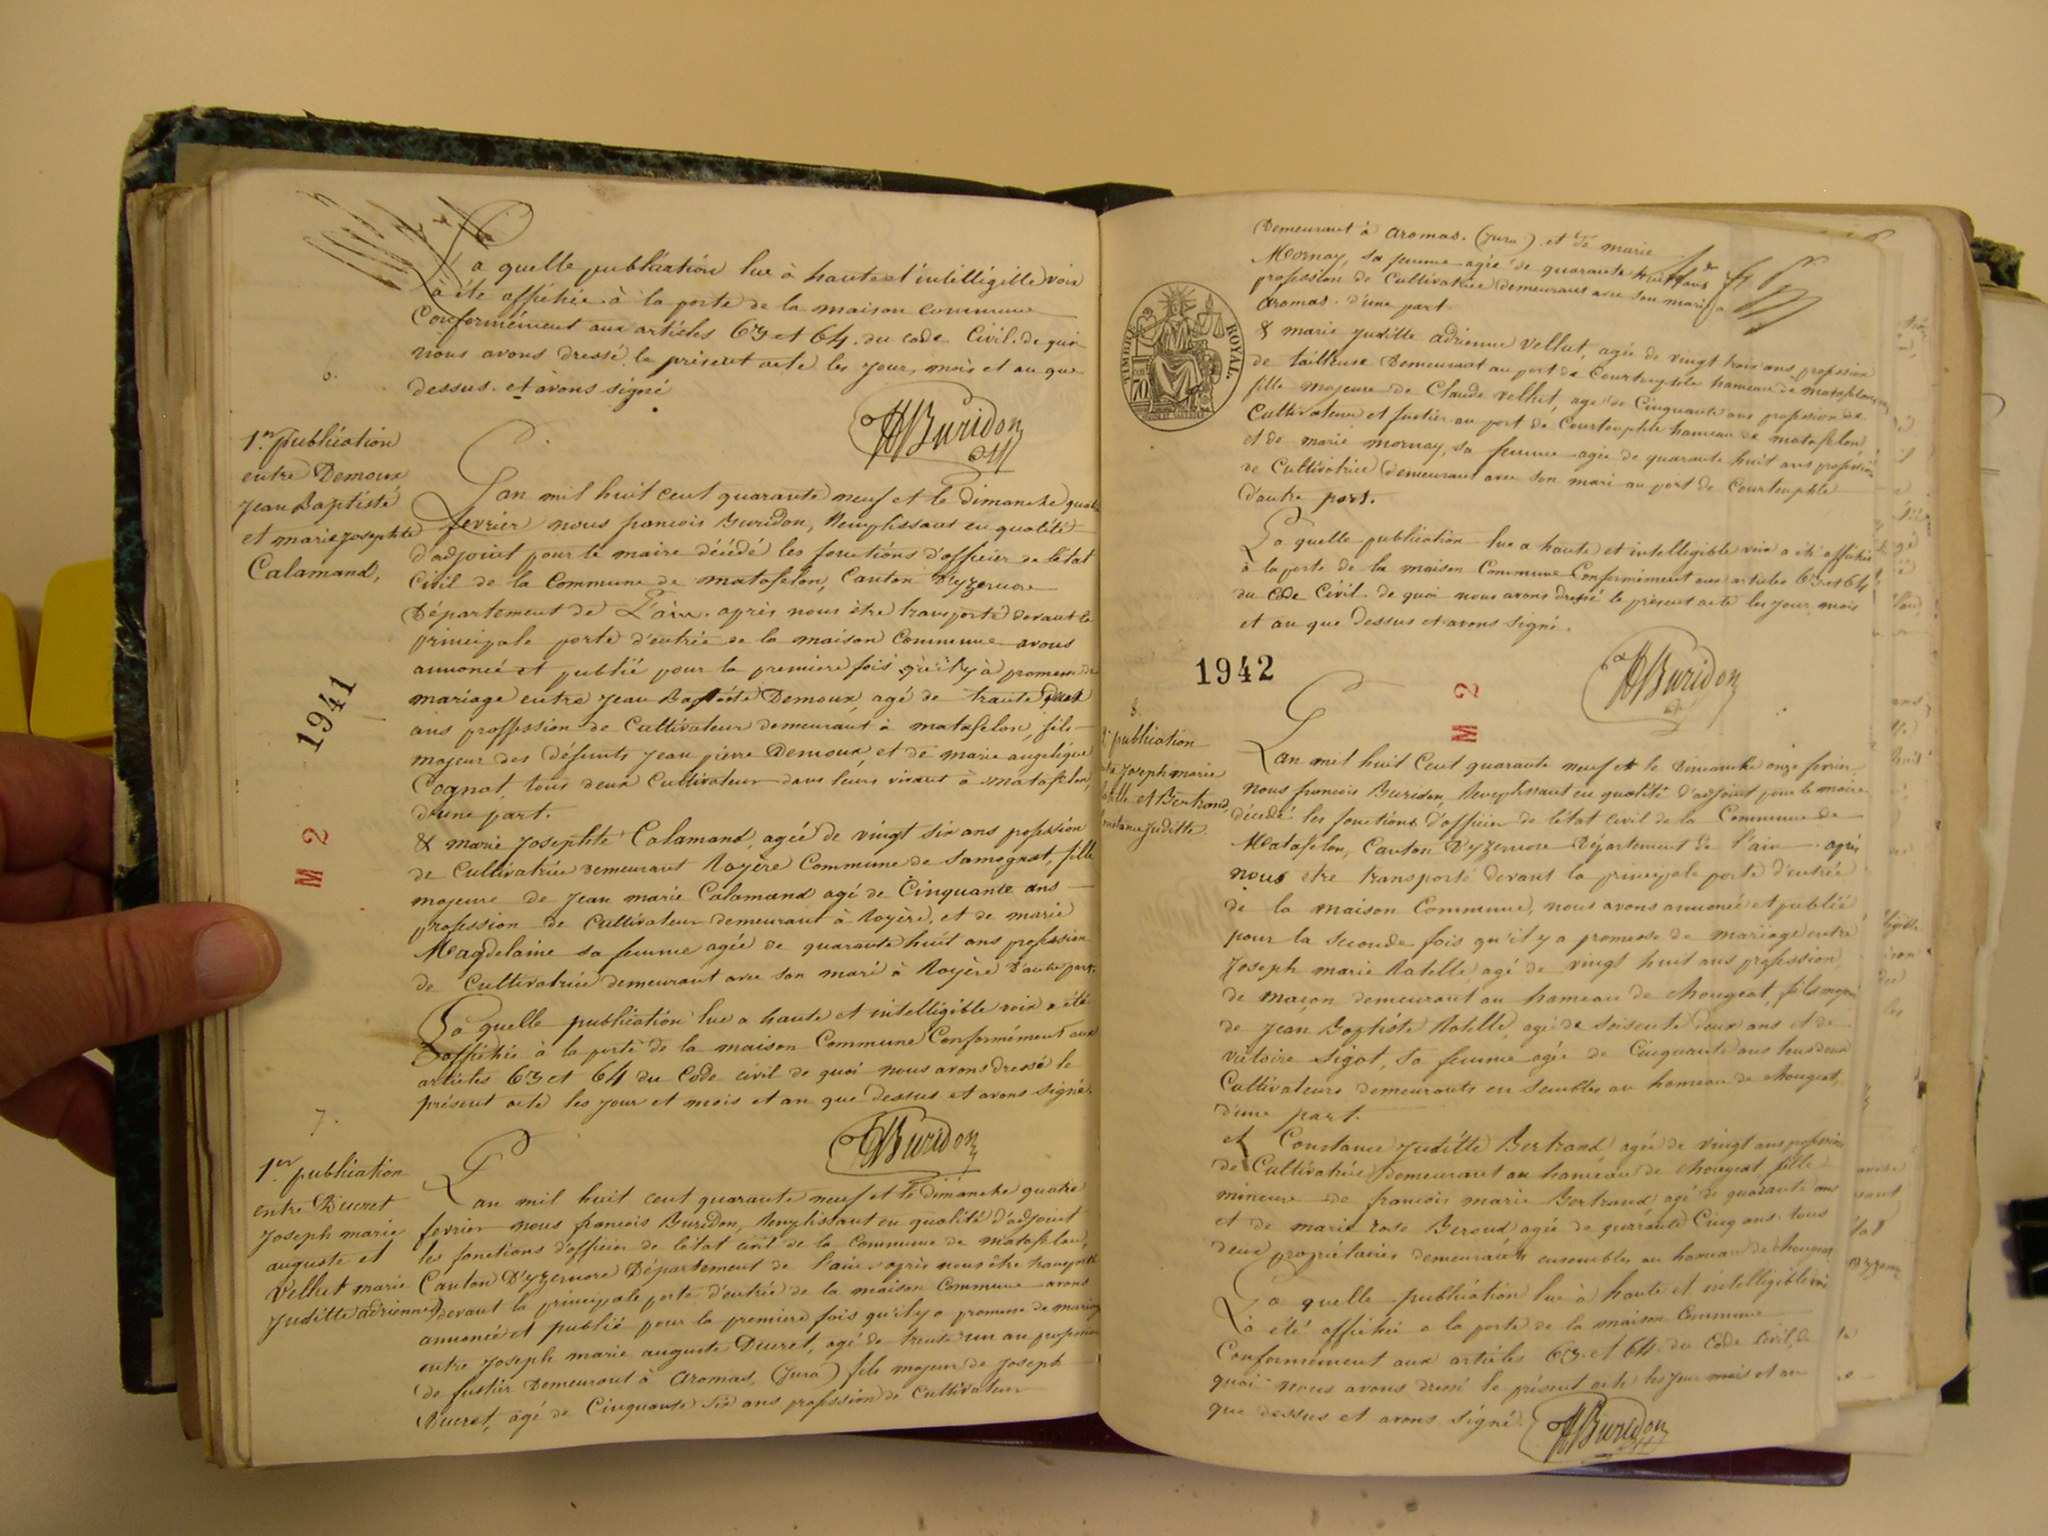 La quelle publication lue à haute et intelligible voix
à été affichée à la porte de la maison commune
Conformément aux articles 63 et 64 du code Civil de quoi
nous avons dressé le présent acte les jour, mois et an que
dessus et avons signé
6.
Buridon
1re publication
entre Demoux
Jean Baptiste
et marie Josephte
Calamand,
L'an mil huit cent quarante neuf et le dimanche quatre
fevrier nous francois Buridon, Remplissant en qualité
d'adjoint pour le maire décédé les fonctions d'officier de l'état
Civil de la Commune de matafelon, Canton D'yzernore
Département de L'ain. après nous être transporté devant la
principale porte d'entrée de la maison Commune avons
annoncé et publié pour la premiere fois qu'il y à promesse de
mariage entre Jean Baptiste Demoux, agé de trente
ans proffession de Cultivateur demeurant à matafelon, fils
majeur des défunts Jean pierre Demoux, et de marie angelique
Cognat tous deux Cultivateur dans leurs vivant à matafelon,
d'une part.
& marie Josephte Calamand, agée de vingt six ans profession
de Cultivatrice demeurant Royère Commune de Samognat, fille
majeure de Jean marie Calamand agé de Cinquante ans
profession de Cultivateur demeurant à Royère, et de marie
Magdelaine sa femme agée de quarante huit ans profession
de Cultivatrice demeurant avec son mari à Royère d'autre part.
La quelle publication lue a haute et intelligible voix a été
affichée à la porte de la maison Commune Conformément aux
articles 63 et 64 du Code civil de quoi nous avons dressé le
présent acte les jour et mois et an que dessus et avons signé.
Buridon
1941
M 2
7.
1er publication
entre Ducret
Joseph marie
auguste et
Vellut marie
Juditte adrienne
L'an mil huit cent quarante neuf et le dimanche quatre
fevrier nous francois Buridon, Remplissant en qualité d'adjoint
les fonctions d'officier de l'état civil de la Commune de matafelon,
Canton D'yzernore Département de l'ain après nous être transporté
devant la principale porte d'entrée de la maison Commune avons
annoncé et publié pour la premiere fois qu'il y a promesse de mariage
entre Joseph marie auguste Ducret, agé de trente un an profession
de fustier Demeurant à Aromas, (Jura) fils majeur de Joseph
Ducret, agé de Cinquante six ans profession de Cultivateur
Demeurant à Aromas. (Jura). et de marie
Mornay, sa femme agée de quarante huit ans
profession de Cultivatrice demeurant avec son mari à
Aromas. d'une part.
TIMBRE ROYAL
70
& marie Juditte adrienne Vellut, agée de vingt trois ans, profession
de tailleuse Demeurant au port de Courtouphle hameau de matafelon,
fille majeure de Claude Vellut, agé de Cinquante ans profession de
Cultivateur et fustier au port de Courtouphle hameau de matafelon,
et de marie mornay, sa femme agée de quarante huit ans profession
de Cultivatrice Demeurant avec son mari au port de Courtouphle
d'autre part.
La quelle publication lue a haute et intelligible voix a été affichée
à la porte de la maison Commune Conformément aux articles 63 et 64
du Code Civil. de quoi nous avons dressé le présent acte les jour, mois
et an que dessus et avons signé.
Buridon
1942
M 2
8.
publication
Joseph marie
et Bertrand
Constance Juditte.
L'an mil huit Cent quarante neuf et le Dimanche onze fevrier
nous francois Buridon, Remplissant en qualité d'adjoint pour le maire
décédé les fonctions d'officier de l'état civil de la Commune de
Matafelon, Canton D'yzernore Département de l'ain. après
nous être transporté devant la principale porte d'entrée
de la maison Commune, nous avons annoncé et publié
pour la seconde fois qu'il y a promesse de mariage entre
Joseph marie Ratelle, agé de vingt huit ans profession,
de maçon demeurant au hameau de chougeat, fils majeur
de Jean Baptiste Ratelle, agé de soisente deux ans et de
victoire Sigot, sa femme agée de Cinquante ans tous deux
Cultivateurs demeurants en sembles au hameau de chougeat,
d'une part.
et Constance Juditte Bertrand, agée de vingt ans profession
de Cultivatrice demeurant au hameau de chougeat fille
mineure de francois marie Bertrand agé de quarante ans
et de marie rose Beroud agée de quarante Cinq ans. tous
deux propriétaires demeurants ensembles au hameau de chougeat
La quelle publication lue à haute et intelligible voix
à été affichée a la porte de la maison Commune
Conformément aux articles 63 et 64 du Code Civil, de
quoi nous avons dressé le présent acte les jour mois et an
que dessus et avons signé.
Buridon